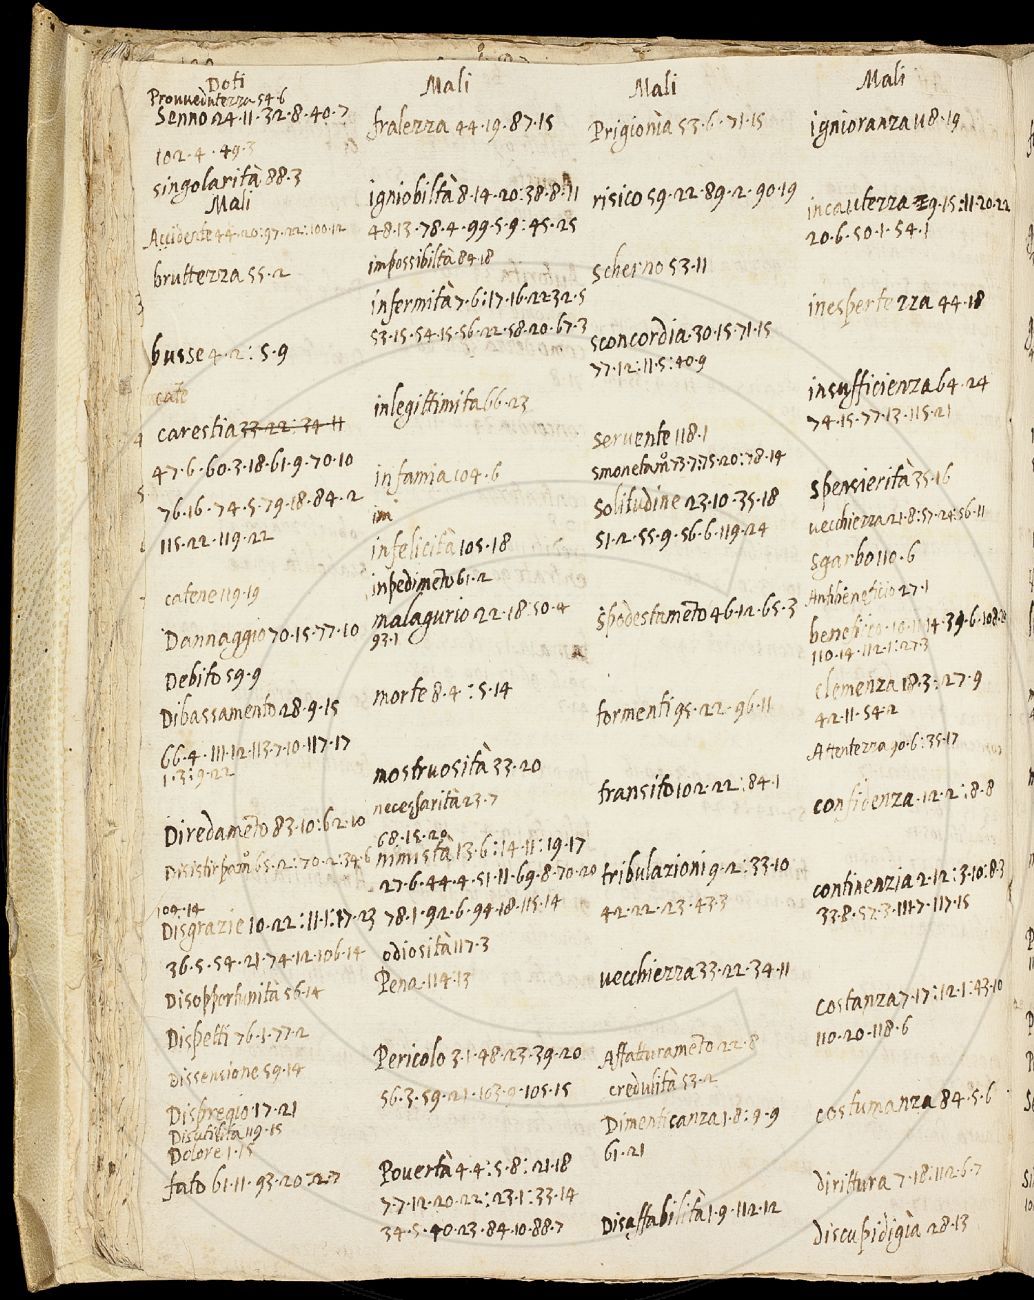 Doti
Provvedutezza 54·6
Senno 24·11·32·8·40·7
102·4·49·3
singolarità 88·3
Mali
Accidente 44·20:97·22:100·12
bruttezza 55·2
busse 4·2:5·9
cate
carestia 33·22:34·11
47·6·60·3·18·61·9·70·10
76·16·74·5·79·18·84·2
115·22·119·22
catene 119·19
Dannaggio 70·15·77·10
Debito 59·9
Dibassamento 28·9·15
66·4·111·12·113·7·10·117·17
1·3:9·22
Diredamēto 83·10:62·10
65·2:70·2:34·6
109·14
Disgrazie 10·22:11·1:17·23
36·5·54·21·74·12·106·14
Disopportunità 56·14
Dispetti 76·1·77·2
Dissensione 59·14
Dispregio 17·21
Disutilità 119·15
Dolore 1·15
fato 61·11·93·20:2·7
Mali
fralezza 44·19·87·15
igniobiltà 8·14·20:38·8·11
48·13·78·4·99·5·9:45·25
impossibiltà 84·18
infermità 7·6:17·16·22 32·5
53·15·54·15·56·22·58·20·67·3
inlegittimità 66·23
infamia 104·6
im
infelicità 105·18
inpedimēto 61·2
malagurio 22·18:50·4
93·1
morte 8·4:5·14
mostruosità 33·20
necessarità 23·7
68·15·20
nimistà 13·6:14·11:19·17
27·6·44·4·51·11·69·8·70·20
78·1·92·6·94·18·115·14
odiosità 117·3
Pena·114·13
Pericolo 3·1·48·23·39·20
56·3·59·21·103·9·105·15
Povertà 4·4:5·8:21·18
7·7·12·20·22:23·1:33·14
34·5·40·23·84·10·88·7
Mali
Prigionia 53·6·71·15
risico 59·22·89·2·90·19
Scherno 53·11
sconcordia 30·15·71·15
77·12:11·5:40·9
Servente 118·1
73·7:75·20:78·14
Solitudine 23·10·35·18
51·2·55·9·56·6·119·24
Spodestamēto 46·12·65·3
tormenti 95·22·96·11
transito 102·22:84·1
tribulazioni 9·2:33·10
42·22·23·43·3
vecchiezza 33·22·34·11
Affatturamēto 22·8
credulità 53·2
Dimenticanza 1·8:9·9
61·21
Disaffabilità 1·9·112·12
Mali
ignioranza 118·19
incautezza 9·15:11·20·22
20·6·50·1·54·1
inespertezza 44·18
insufficienza 64·24
74·15·77·13·115·21
Spensierità 35·16
vecchiezza 21·8:57·24:56·11
Sgarbo 110·6
Antibeneficio 27·1
110·14·112·1:27·3
clemenza 18·3:27·9
42·11·54·2
Attentezza 20·6:35·17
confidenza·12·2:8·8
continenzia 2·12:3·10:8·3
33·8·57·3·111·7·117·15
costanza 7·17:12·1:43·10
110·20·118·6
costumanza 84·5·6
dirittura 7·18:112·6·7
discupidigia 28·13